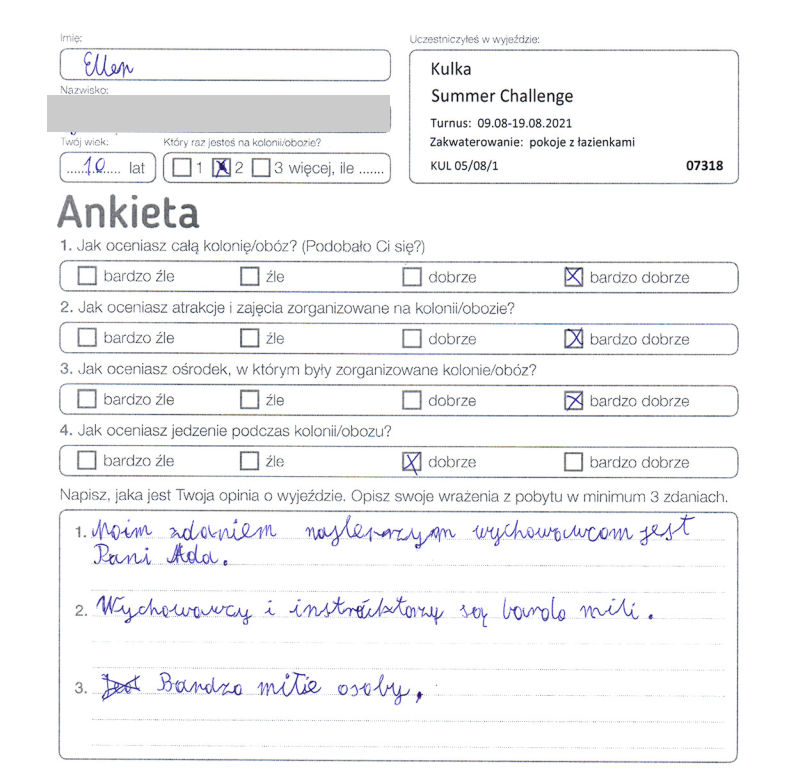 Imię:
Ellen
Nazwisko:
Twój wiek:
Który raz jesteś na kolonii/obozie?
.....10..... lat
1 2 3 więcej, ile .......
Uczestniczyłeś w wyjeździe:
Kulka
Summer Challenge
Turnus: 09.08-19.08.2021
Zakwaterowanie: pokoje z łazienkami
KUL 05/08/1 07318
Ankieta
1. Jak oceniasz całą kolonię/obóz? (Podobało Ci się?)
bardzo źle źle dobrze bardzo dobrze
2. Jak oceniasz atrakcje i zajęcia zorganizowane na kolonii/obozie?
bardzo źle źle dobrze bardzo dobrze
3. Jak oceniasz ośrodek, w którym były zorganizowane kolonie/obóz?
bardzo źle źle dobrze bardzo dobrze
4. Jak oceniasz jedzenie podczas kolonii/obozu?
bardzo źle źle dobrze bardzo dobrze
Napisz, jaka jest Twoja opinia o wyjeździe. Opisz swoje wrażenia z pobytu w minimum 3 zdaniach.
1. Moim zdaniem najleprzym wychowawcom jest
Pani Ada.
2. Wychowawcy i instrócktorzy są bardo mili.
3. Jest Bardzo miłie osoby.